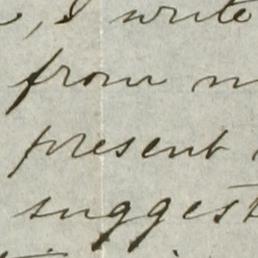 , I write
from
present
suggest